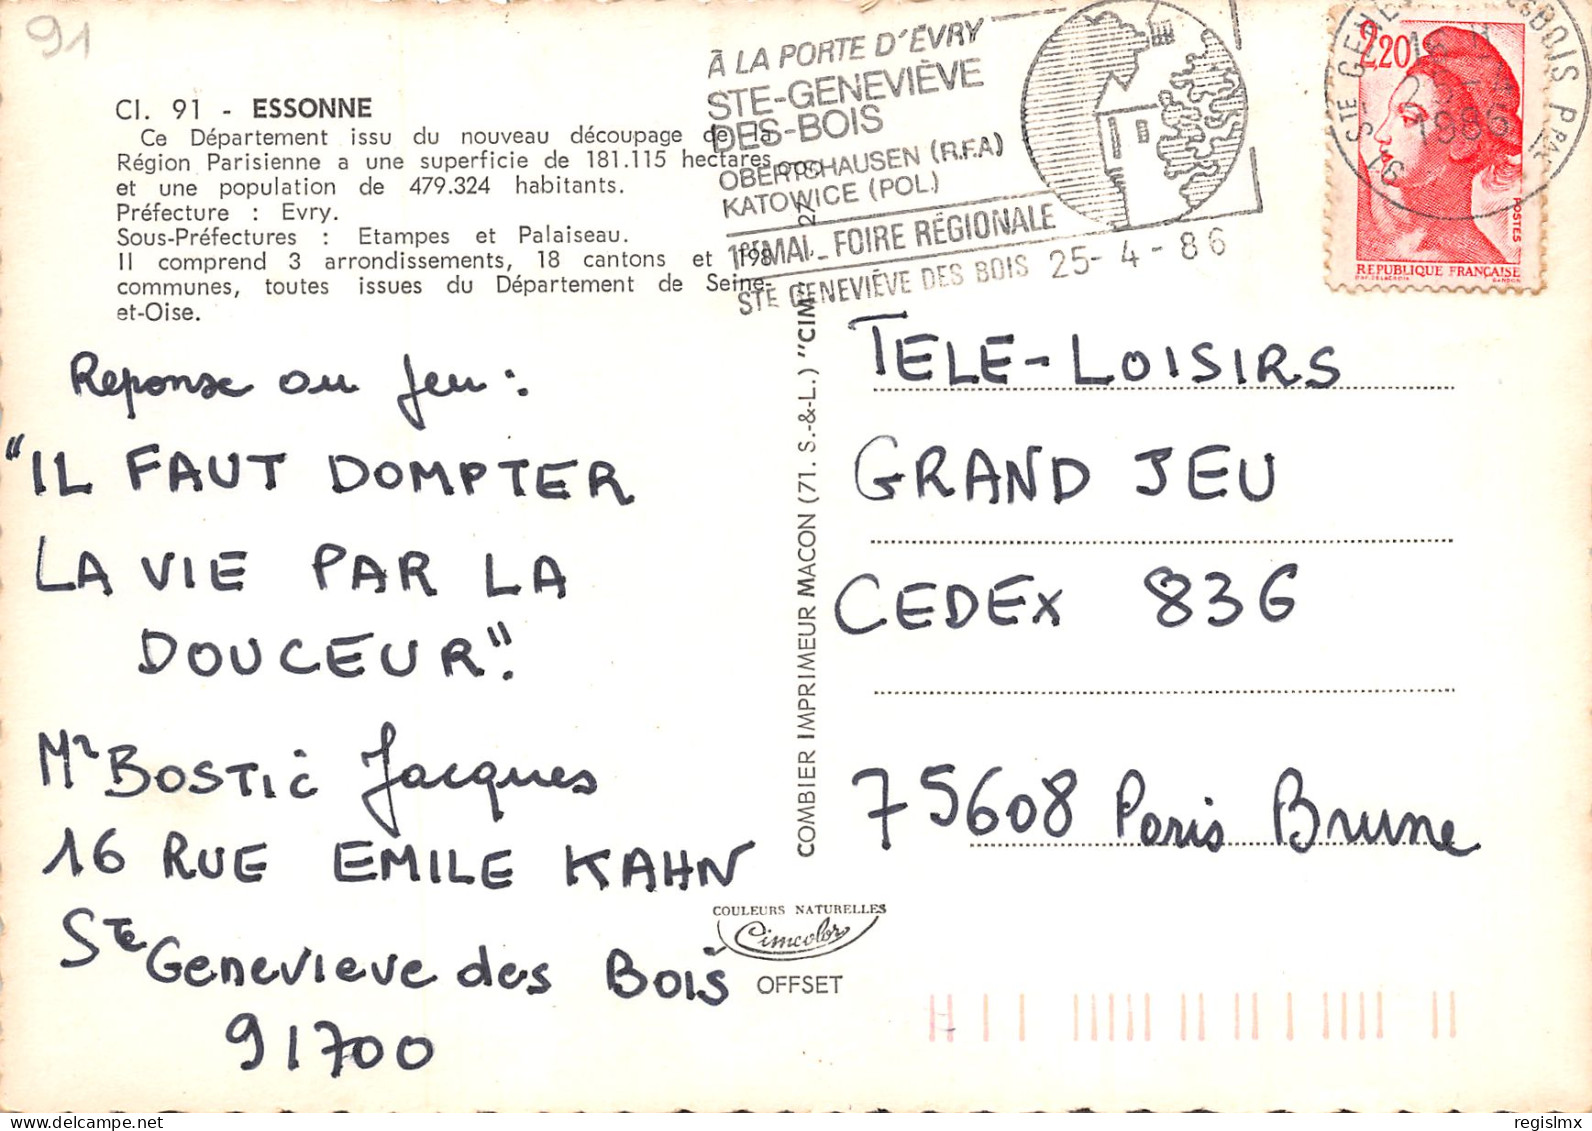 91
Cl. 91 - ESSONNE
Ce Département issu du nouveau découpage de la
Région Parisienne a une superficie de 181.115 hectares
et une population de 479.324 habitants.
Préfecture : Evry.
Sous-Préfectures : Etampes et Palaiseau.
Il comprend 3 arrondissements, 18 cantons et 198
communes, toutes issues du Département de Seine-
et-Oise.
À LA PORTE D'ÉVRY
STE-GENEVIÈVE
DES-BOIS
OBERTSHAUSEN (R.F.A)
KATOWICE (POL.)
1er MAI - FOIRE RÉGIONALE
STE GENEVIÈVE DES BOIS 25-4-86
STE GENEV BOIS PPAL
1986
91
2,20
POSTES
REPUBLIQUE FRANÇAISE
Reponse au jeu :
"IL FAUT DOMPTER
LA VIE PAR LA
DOUCEUR".
Mr BOSTIC Jacques
16 RUE EMILE KAHN
Ste Genevieve des Bois
91700
COMBIER IMPRIMEUR MACON (71. S.-&-L.) "CIM"
COULEURS NATURELLES
Cimcolor
OFFSET
TELE-LOISIRS
GRAND JEU
CEDEX 836
75608 Paris Brune
regislmx